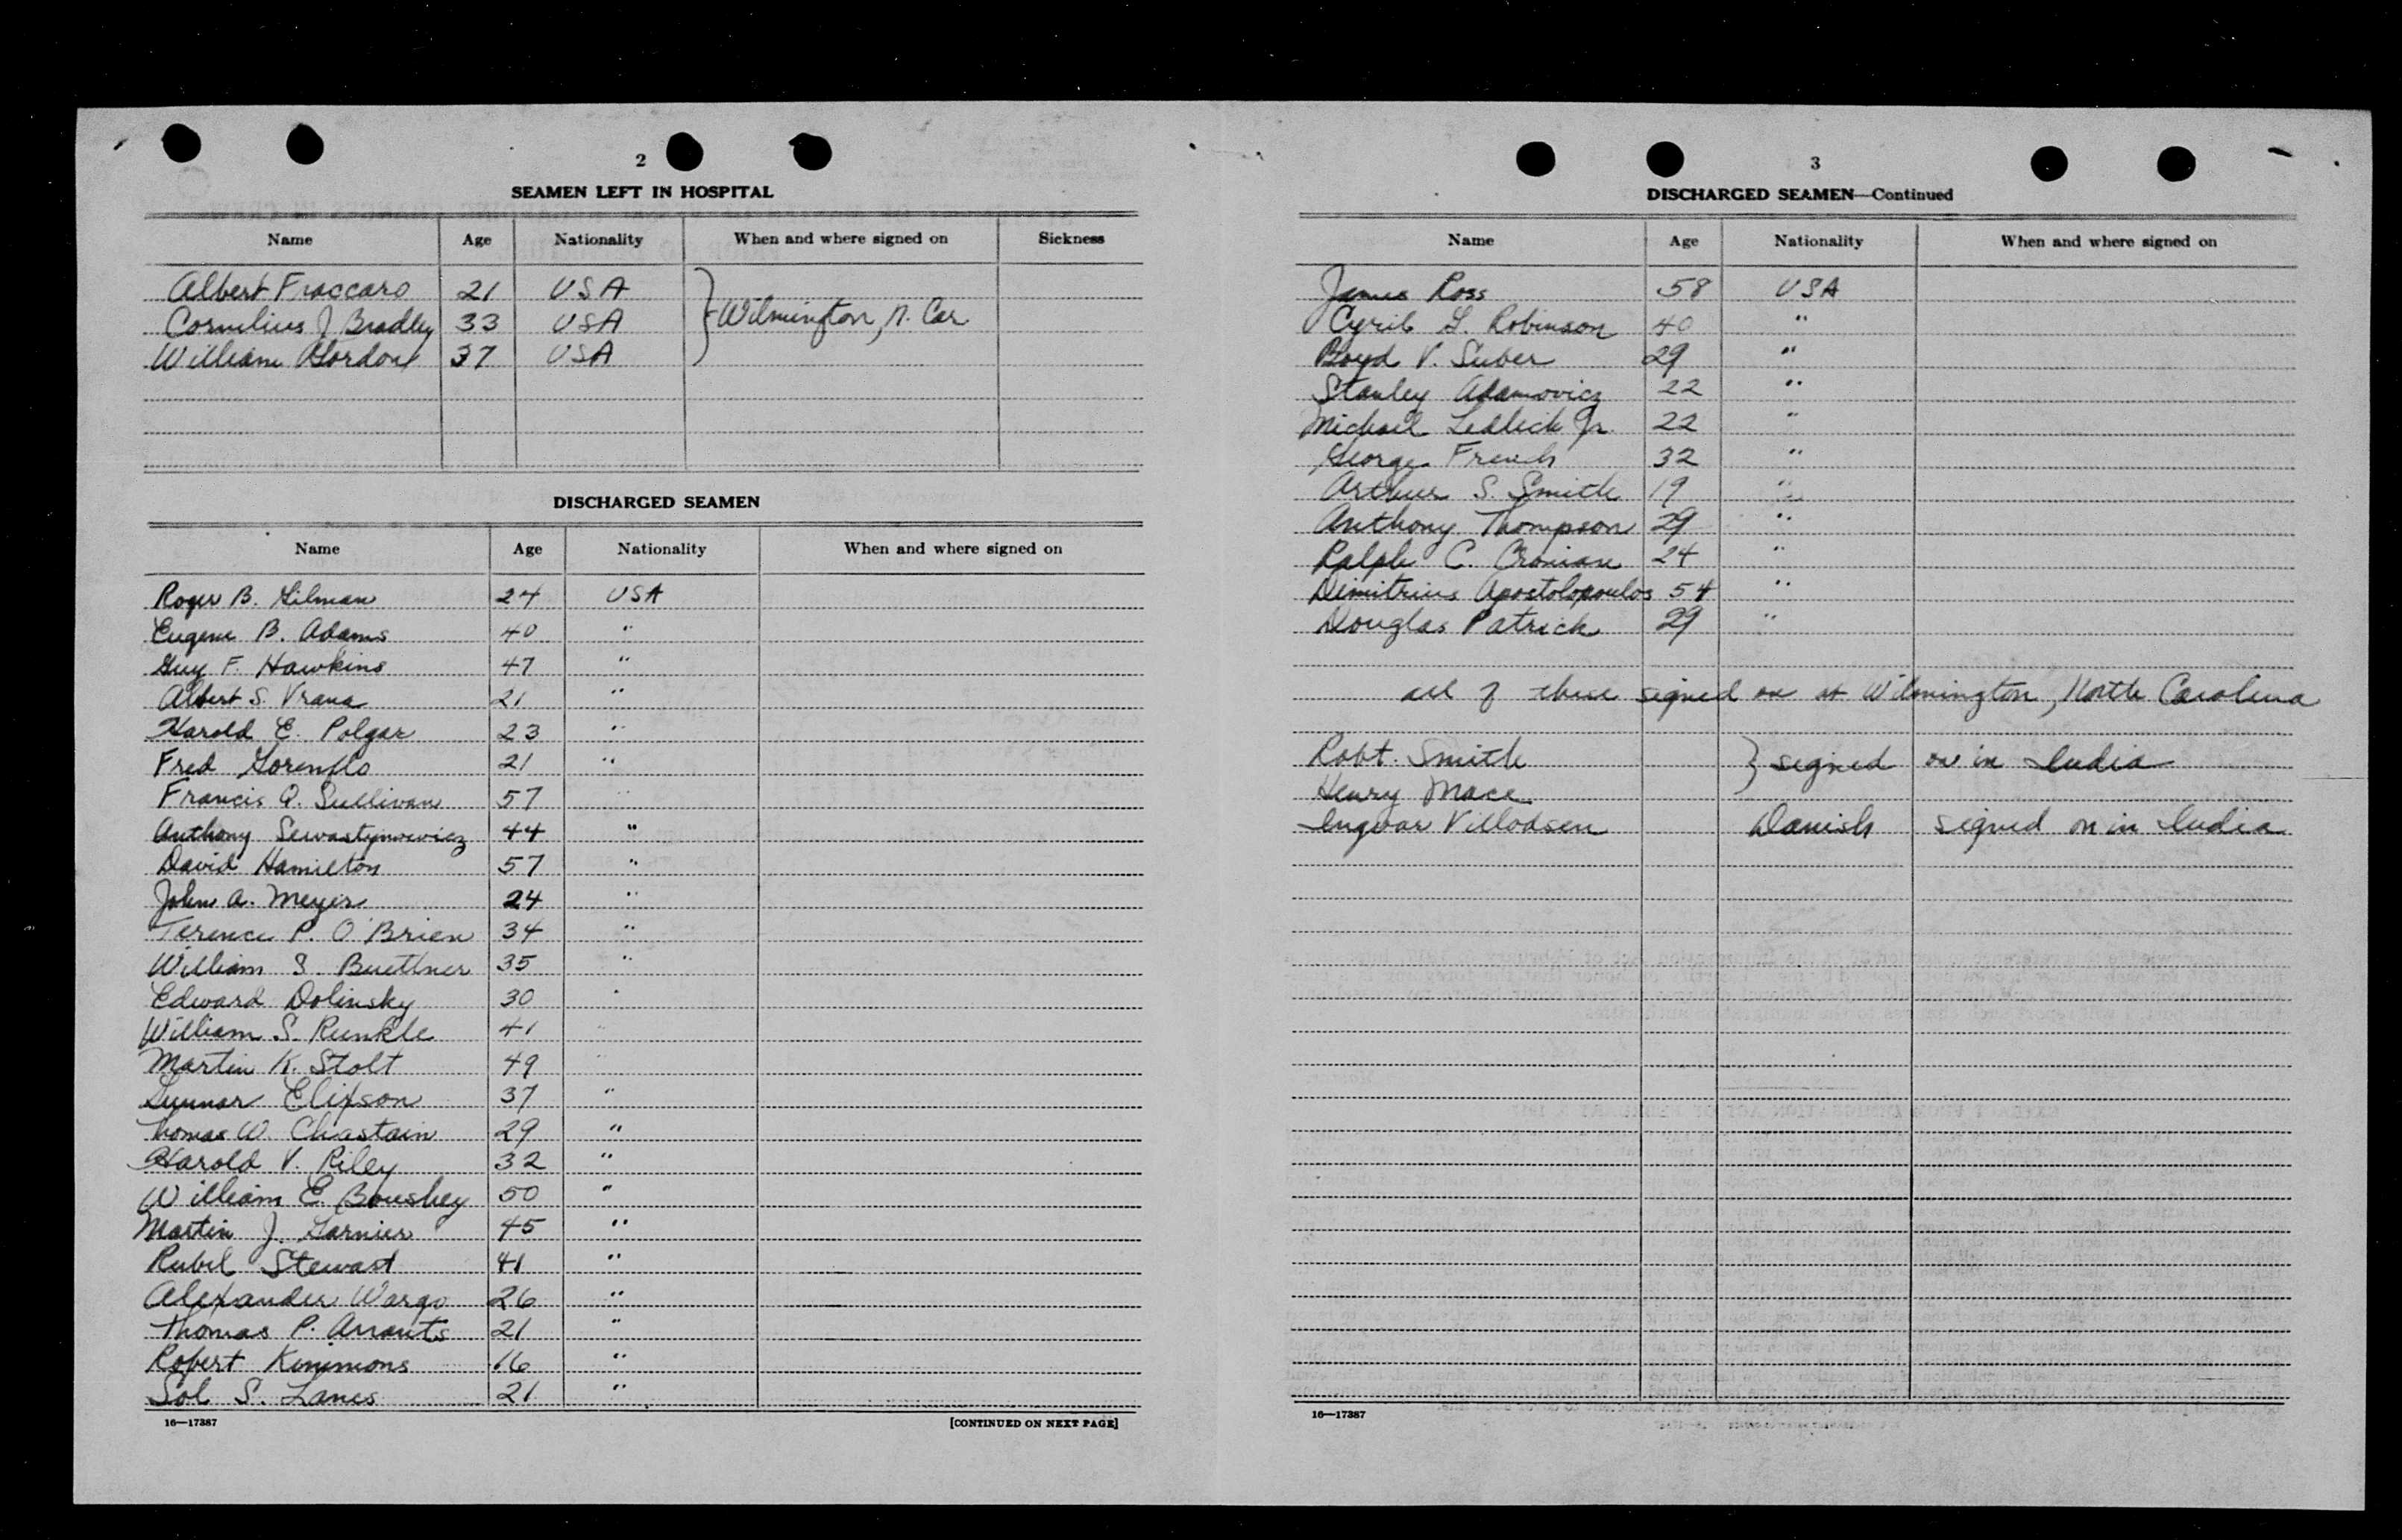 2
SEAMEN LEFT IN HOSPITAL
Name Age Nationality When and where signed on Sickness
Albert Fraccaro 21 USA
Cornelius J Bradley 33 USA } Wilmington, N. Car
William Gordon 37 USA
DISCHARGED SEAMEN
Name Age Nationality When and where signed on
Roger B. Gilman 24 USA
Eugene B. Adams 40 "
Guy F. Hawkins 47 "
Albert S. Vrana 21 "
Harold E. Polgar 23 "
Fred Gorenflo 21 "
Francis Q. Sullivan 57 "
Anthony Sewastynowicz 44 "
David Hamilton 57 "
John A. Meyer 24 "
Terence P. O'Brien 34 "
William S. Buettner 35 "
Edward Dolinsky 30 "
William S. Runkle 41 "
Martin K. Stolt 49 "
Gunnar Elifson 37 "
Thomas W. Chastain 29 "
Harold V. Riley 32 "
William E. Boushey 50 "
Martin J. Garnier 45 "
Rubel Stewart 41 "
Alexander Wargo 26 "
Thomas P. Arrants 21 "
Robert Kimmons 16 "
Sol S. Lanes 21 "
16—17387 [CONTINUED ON NEXT PAGE]
3
DISCHARGED SEAMEN—Continued
Name Age Nationality When and where signed on
James Ross 58 USA
Cyril L. Robinson 40 "
Boyd V. Suber 29 "
Stanley Adamovicz 22 "
Michael Sedlick Jr. 22 "
George French 32 "
Arthur S. Smith 19 "
Anthony Thompson 29 "
Ralph C. Cronian 24 "
Dimitrius Apostolopoulos 54 "
Douglas Patrick 29 "
all of these signed on at Wilmington, North Carolina
Robt. Smith } signed on in India
Henry Mace
Ingvar Villodsen Danish signed on in India
16—17387